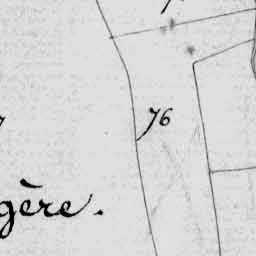 76
gère.